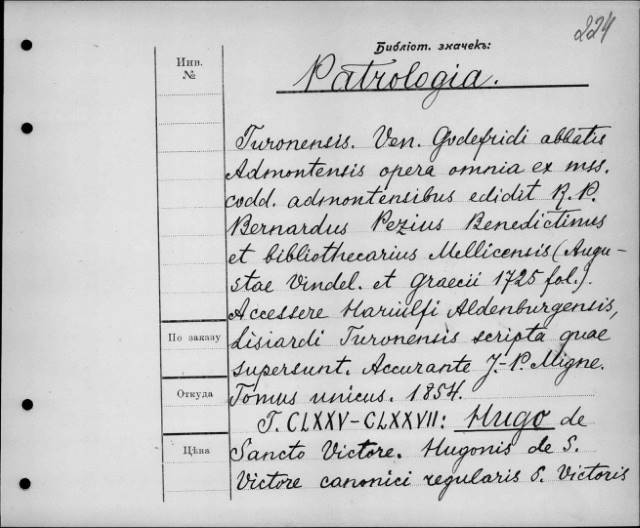 224
Библіот. значекъ:
Инв.
№
Patrologia.
Turonensis. Ven. Godefridi abbatis
Admontensis opera omnia ex mss.
codd. admontensibus edidit R. P.
Bernardus Pezius Benedictinus
et bibliothecarius Mellicensis (Augu-
stae Vindel. et Graecii 1725 fol.).
Accessere Hariulfi Aldenburgensis,
Lisiardi Turonensis scripta quae
supersunt. Accurante J.-P. Migne.
Tomus unicus. 1854.
T. CLXXV-CLXXVII: Hugo de
Sancto Victore. Hugonis de S.
Victore canonici regularis S. Victoris
По заказу
Откуда
Цѣна